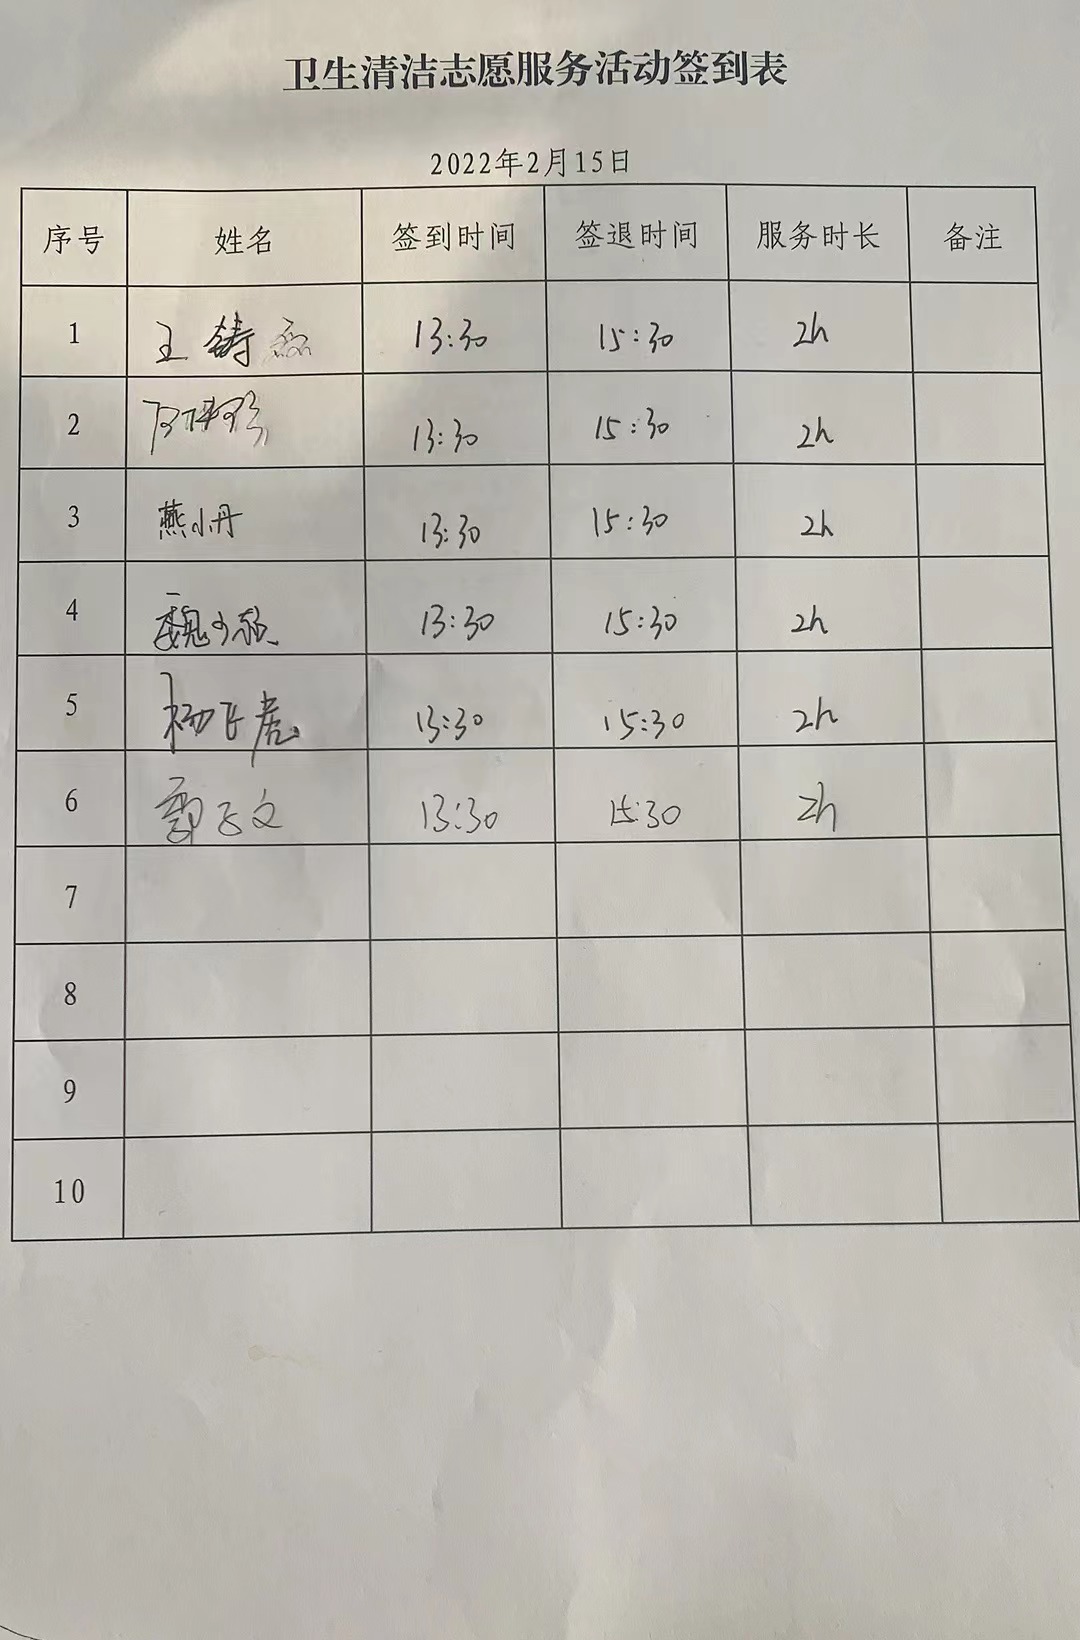 卫生清洁志愿服务活动签到表
2022年2月15日
序号 姓名 签到时间 签退时间 服务时长 备注
1 王铸 13:30 15:30 2h
2 13:30 15:30 2h
3 燕小丹 13:30 15:30 2h
4 魏 13:30 15:30 2h
5 杨飞虎 13:30 15:30 2h
6 郭 文 13:30 15:30 2h
7
8
9
10